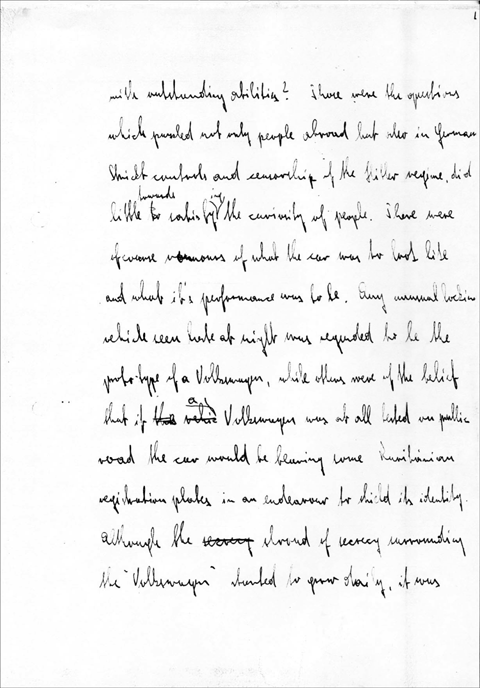 1
with outstanding abilities? There were the questions
which puzzled not only people abroad but also in German
Strict controls and censorship of the Hitler regime, did
towards ing
little to satisfy the curiosity of people. There were
of course rumours of what the car was to look like
and what it's performance was to be. Any unusual looking
vehicle seen late at night was regarded to be the
prototype of a Volkswagen, while others were of the belief
a
that if the Volkswagen was at all tested on public
road the car would be bearing some
registration plates in an endeavour to shield its identity.
Although the secrecy shroud of secrecy surrounding
the "Volkswagen" started to grow daily, it was